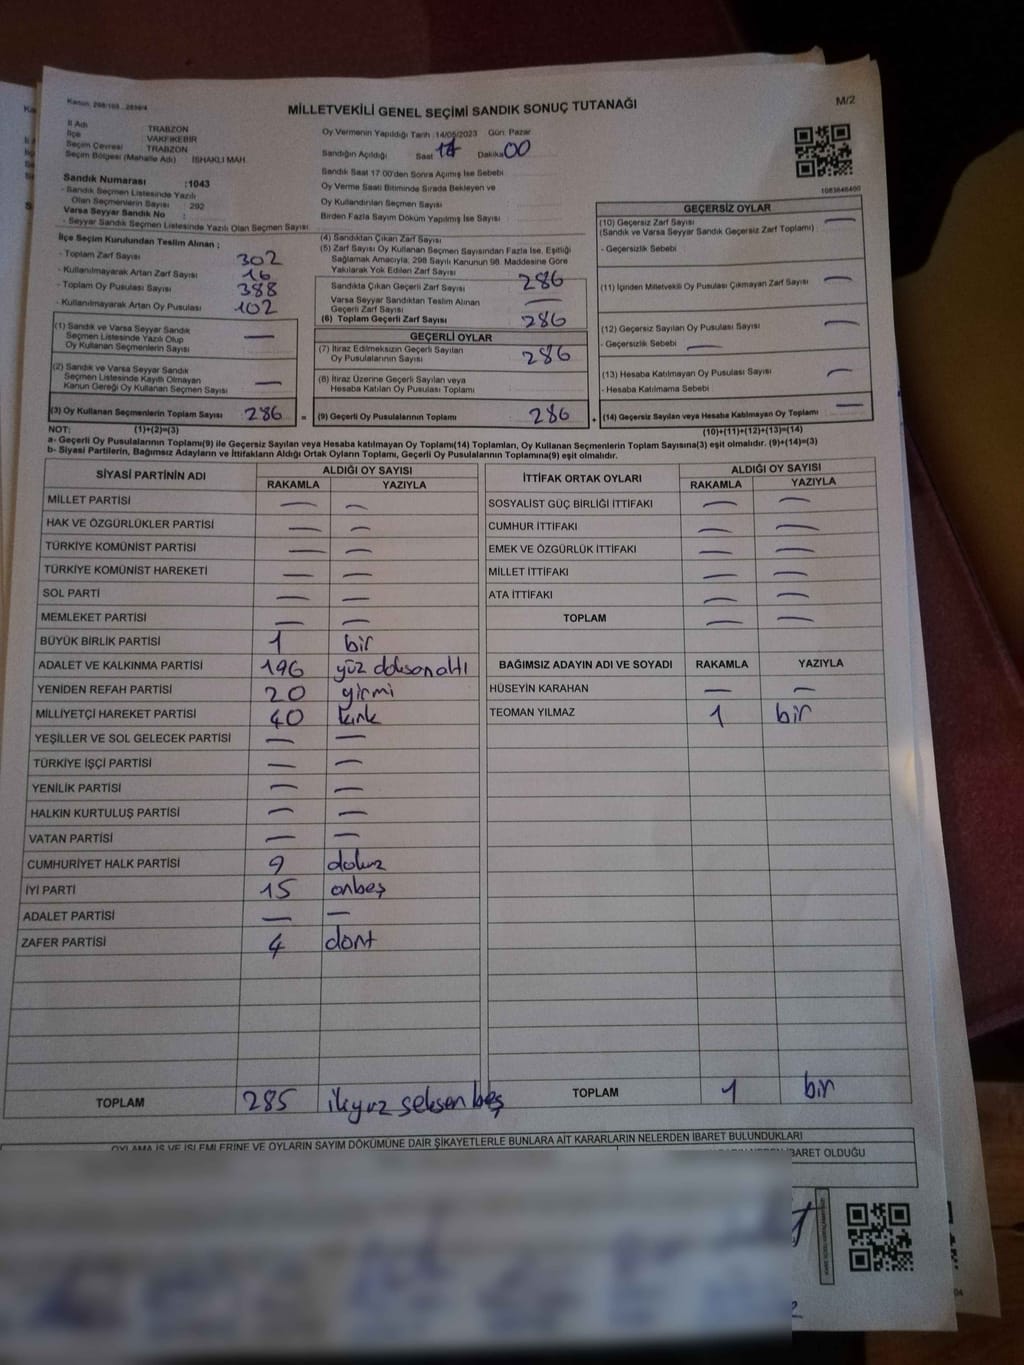 MİLLETVEKİLİ GENEL SEÇİMİ SANDIK SONUÇ TUTANAĞI
M/2
İl Adı : TRABZON
İlçe : VAKFIKEBİR
Seçim Çevresi : TRABZON
Seçim Bölgesi (Mahalle Adı) : İSHAKLI MAH.
Sandık Numarası :1043
- Sandık Seçmen Listesinde Yazılı
Olan Seçmenlerin Sayısı : 292
Varsa Seyyar Sandık No :
- Seyyar Sandık Seçmen Listesinde Yazılı Olan Seçmen Sayısı
Oy Vermenin Yapıldığı Tarih :14/05/2023 Gün: Pazar
Sandığın Açıldığı Saat 17 Dakika 00
Sandık Saat 17:00'den Sonra Açımış İse Sebebi
Oy Verme Saati Bitiminde Sırada Bekleyen ve
Oy Kullandırılan Seçmen Sayısı
Birden Fazla Sayım Döküm Yapılmış İse Sayısı
1083646400
İlçe Seçim Kurulundan Teslim Alınan ;
- Toplam Zarf Sayısı 302
- Kullanılmayarak Artan Zarf Sayısı 16
- Toplam Oy Pusulası Sayısı 388
- Kullanılmayarak Artan Oy Pusulası 102
(1) Sandık ve Varsa Seyyar Sandık
Seçmen Listesinde Yazılı Olup
Oy Kullanan Seçmenlerin Sayısı —
(2) Sandık ve Varsa Seyyar Sandık
Seçmen Listesinde Kayıtlı Olmayan
Kanun Gereği Oy Kullanan Seçmen Sayısı —
(3) Oy Kullanan Seçmenlerin Toplam Sayısı 286 =
(4) Sandıktan Çıkan Zarf Sayısı
(5) Zarf Sayısı Oy Kullanan Seçmen Sayısından Fazla İse, Eşitliği
Sağlamak Amacıyla, 298 Sayılı Kanunun 98. Maddesine Göre
Yakılarak Yok Edilen Zarf Sayısı
Sandıkta Çıkan Geçerli Zarf Sayısı 286
Varsa Seyyar Sandıktan Teslim Alınan
Geçerli Zarf Sayısı —
(6) Toplam Geçerli Zarf Sayısı 286
GEÇERLİ OYLAR
(7) İtiraz Edilmeksizin Geçerli Sayılan
Oy Pusulalarının Sayısı 286
(8) İtiraz Üzerine Geçerli Sayılan veya
Hesaba Katılan Oy Pusulası Toplamı
(9) Geçerli Oy Pusulalarının Toplamı 286 +
GEÇERSİZ OYLAR
(10) Geçersiz Zarf Sayısı —
(Sandık ve Varsa Seyyar Sandık Geçersiz Zarf Toplamı)
- Geçersizlik Sebebi
(11) İçinden Milletvekili Oy Pusulası Çıkmayan Zarf Sayısı —
(12) Geçersiz Sayılan Oy Pusulası Sayısı —
- Geçersizlik Sebebi —
(13) Hesaba Katılmayan Oy Pusulası Sayısı —
- Hesaba Katılmama Sebebi
(14) Geçersiz Sayılan veya Hesaba Katılmayan Oy Toplamı —
NOT: (1)+(2)=(3) (10)+(11)+(12)+(13)=(14)
a- Geçerli Oy Pusulalarının Toplamı(9) ile Geçersiz Sayılan veya Hesaba katılmayan Oy Toplamı(14) Toplamları, Oy Kullanan Seçmenlerin Toplam Sayısına(3) eşit olmalıdır. (9)+(14)=(3)
b- Siyasi Partilerin, Bağımsız Adayların ve İttifakların Aldığı Ortak Oyların Toplamı, Geçerli Oy Pusulalarının Toplamına(9) eşit olmalıdır.
SİYASİ PARTİNİN ADI ALDIĞI OY SAYISI
RAKAMLA YAZIYLA
MİLLET PARTİSİ — —
HAK VE ÖZGÜRLÜKLER PARTİSİ — —
TÜRKİYE KOMÜNİST PARTİSİ — —
TÜRKİYE KOMÜNİST HAREKETİ — —
SOL PARTİ — —
MEMLEKET PARTİSİ — —
BÜYÜK BİRLİK PARTİSİ 1 bir
ADALET VE KALKINMA PARTİSİ 196 yüz doksanaltı
YENİDEN REFAH PARTİSİ 20 yirmi
MİLLİYETÇİ HAREKET PARTİSİ 40 kırk
YEŞİLLER VE SOL GELECEK PARTİSİ — —
TÜRKİYE İŞÇİ PARTİSİ — —
YENİLİK PARTİSİ — —
HALKIN KURTULUŞ PARTİSİ — —
VATAN PARTİSİ — —
CUMHURİYET HALK PARTİSİ 9 dokuz
İYİ PARTİ 15 onbeş
ADALET PARTİSİ — —
ZAFER PARTİSİ 4 dört
TOPLAM 285 ikiyüz seksen beş
İTTİFAK ORTAK OYLARI ALDIĞI OY SAYISI
RAKAMLA YAZIYLA
SOSYALİST GÜÇ BİRLİĞİ İTTİFAKI — —
CUMHUR İTTİFAKI — —
EMEK VE ÖZGÜRLÜK İTTİFAKI — —
MİLLET İTTİFAKI — —
ATA İTTİFAKI — —
TOPLAM — —
BAĞIMSIZ ADAYIN ADI VE SOYADI RAKAMLA YAZIYLA
HÜSEYİN KARAHAN — —
TEOMAN YILMAZ 1 bir
TOPLAM 1 bir
OYLAMA İŞ VE İŞLEMLERİNE VE OYLARIN SAYIM DÖKÜMÜNE DAİR ŞİKAYETLERLE BUNLARA AİT KARARLARIN NELERDEN İBARET BULUNDUKLARI
İBARET OLDUĞU